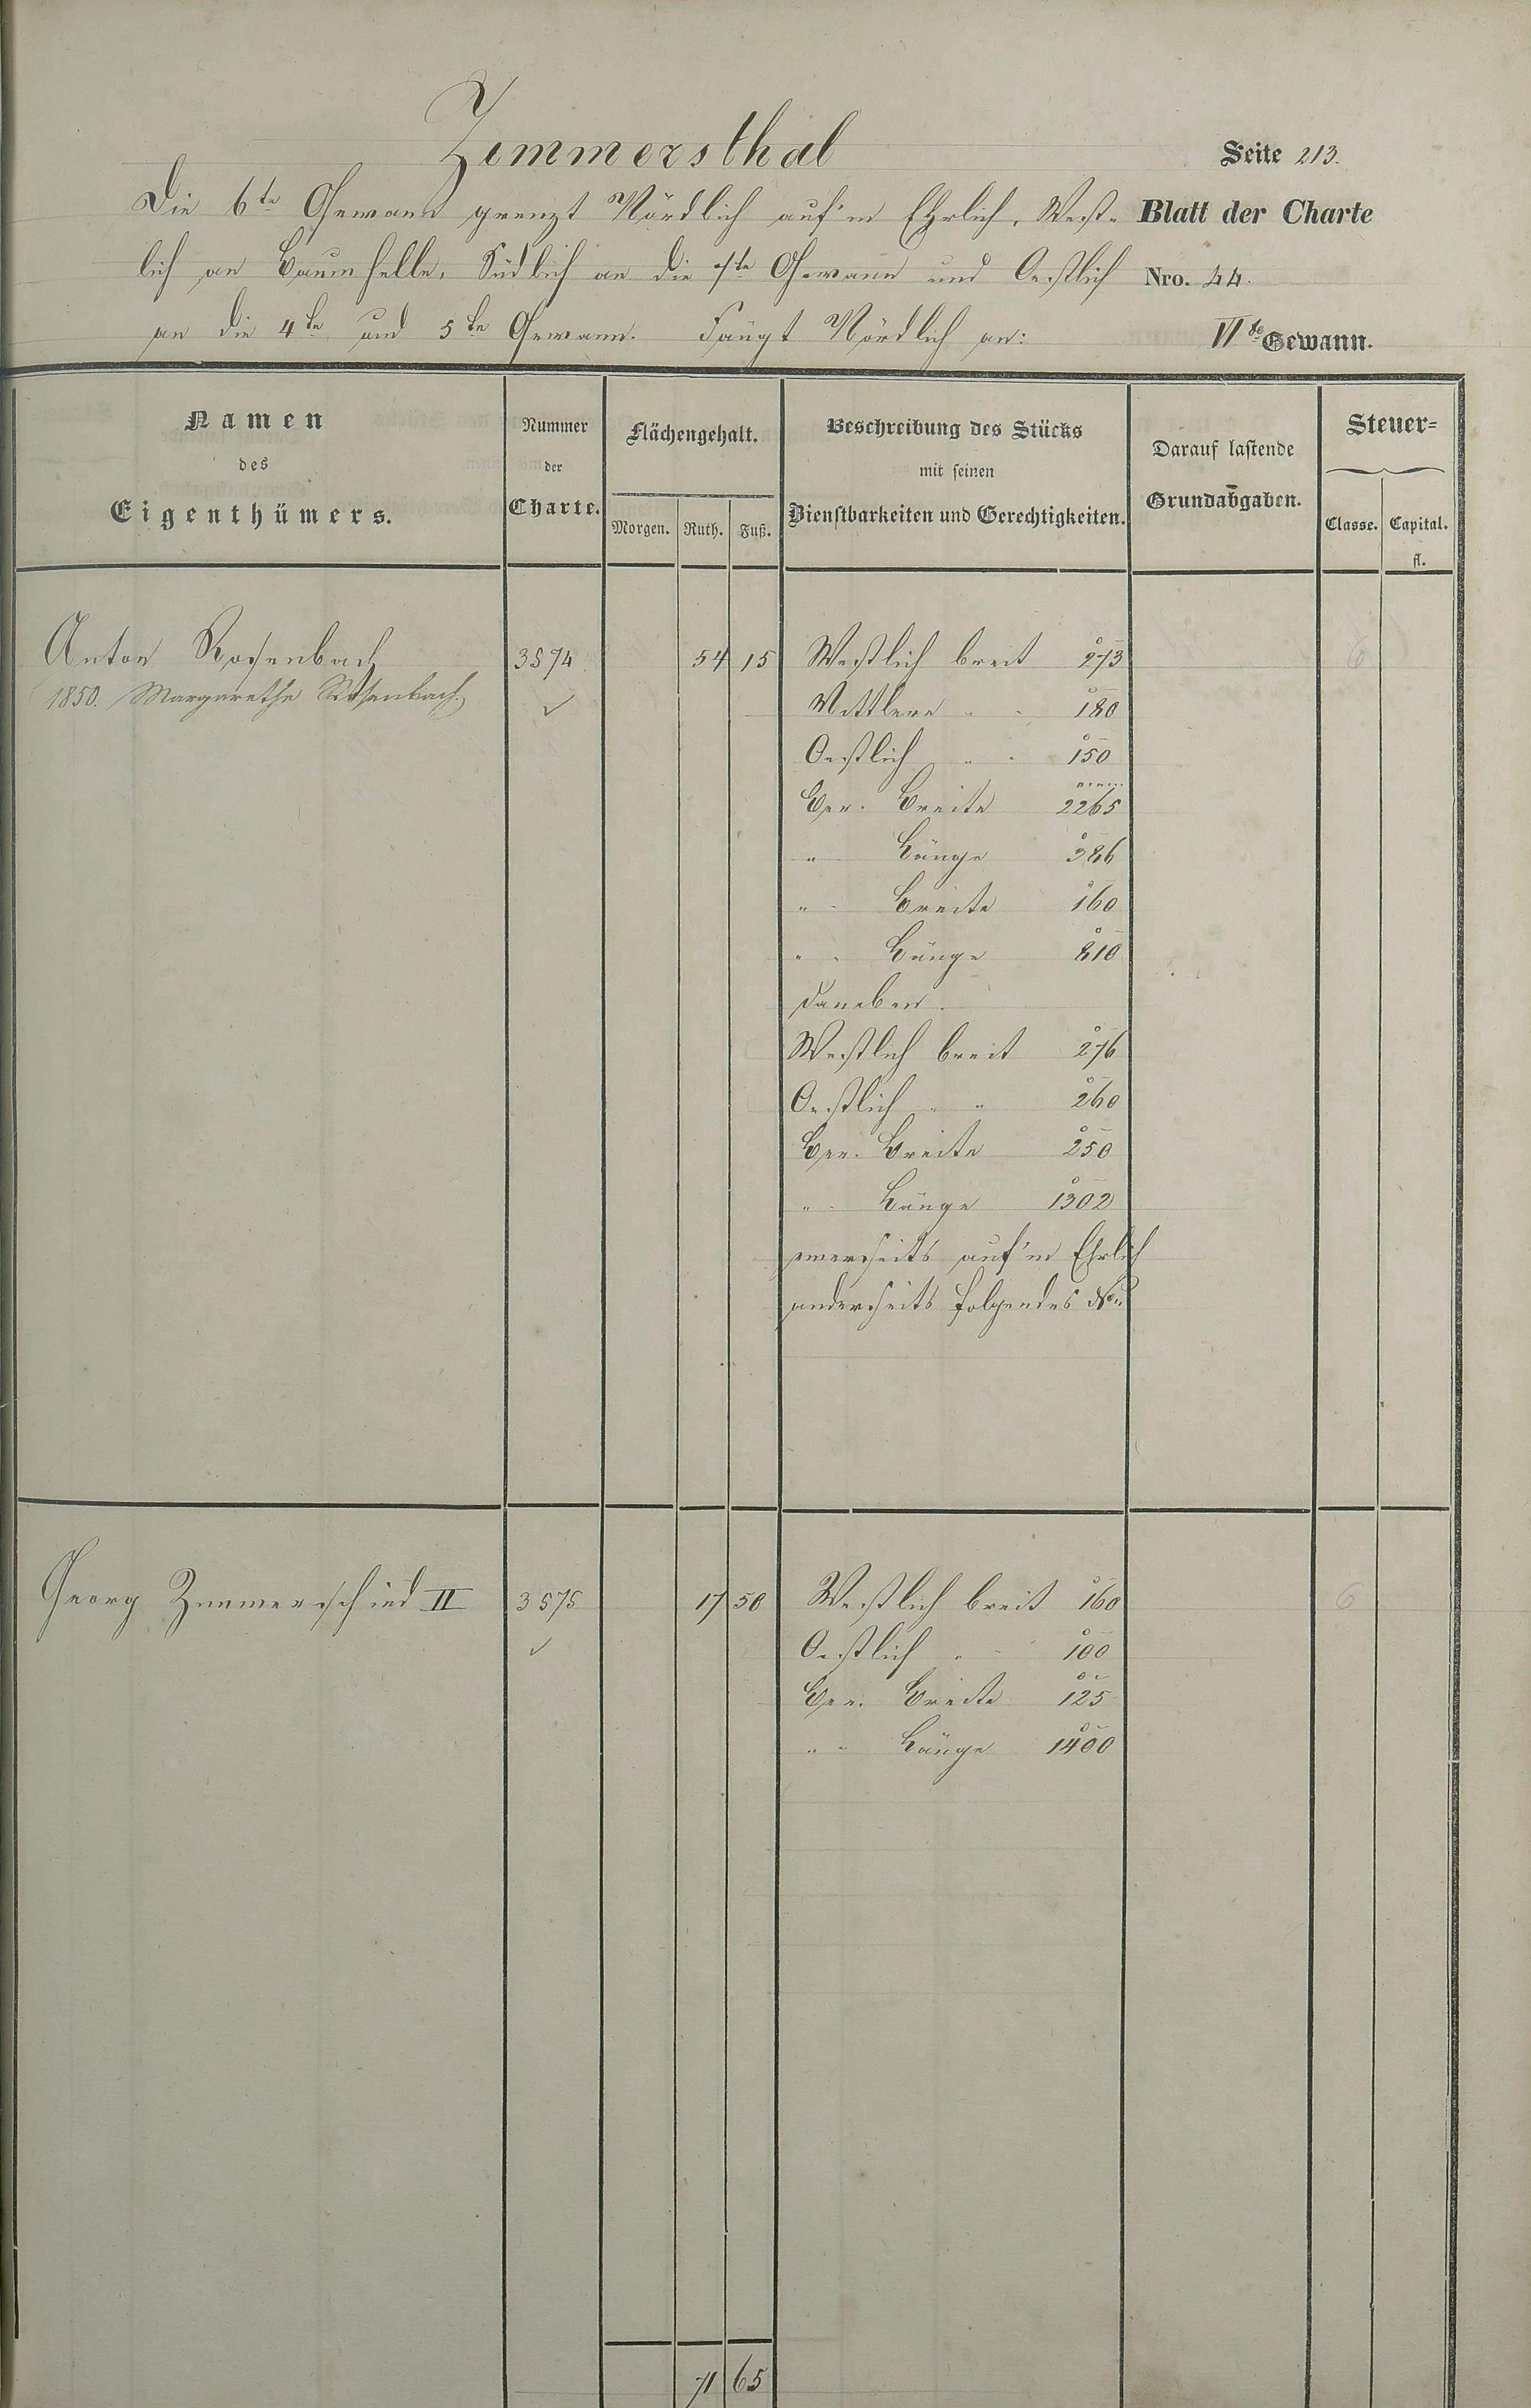 Zimmersthal
Seite 213.
Die 6te Gewann grenzt Nördlich auf'm Ehrlich, West-
Blatt der Charte
lich an Baumhelle, Südlich an die 1te Gewann und Oestlich
Nro. 44.
an die 4te und 5te Gewann. Fängt Nördlich an:
VIte Gewann.
Namen
des
Eigenthümers.
Nummer
der
Charte.
Flächengehalt.
Morgen. Ruth. Fuß.
Beschreibung des Stücks
mit seinen
Dienstbarkeiten und Gerechtigkeiten.
Darauf lastende
Grundabgaben.
Steuer=
Classe. Capital.
fl.
Anton Rosenbach 3574 54 15 Westlich breit 273 6
1850. Margarethe Rosenbach. ✓ Mittlere " " 180
Oestlich " " 150
Ger. Breite 2265
" Länge 386
" Breite 160
" Länge 810
daneben.
Westlich breit 276
Oestlich " " 260
Ger. Breite 250
" Länge 1302
einerseits auf'm Ehrlich
anderseits folgendes No.
Georg Zimmerschied II 3575 17 50 Westlich breit 160 6
✓ Oestlich " " 100
Ger. Breite 125
" Länge 1400
71 65